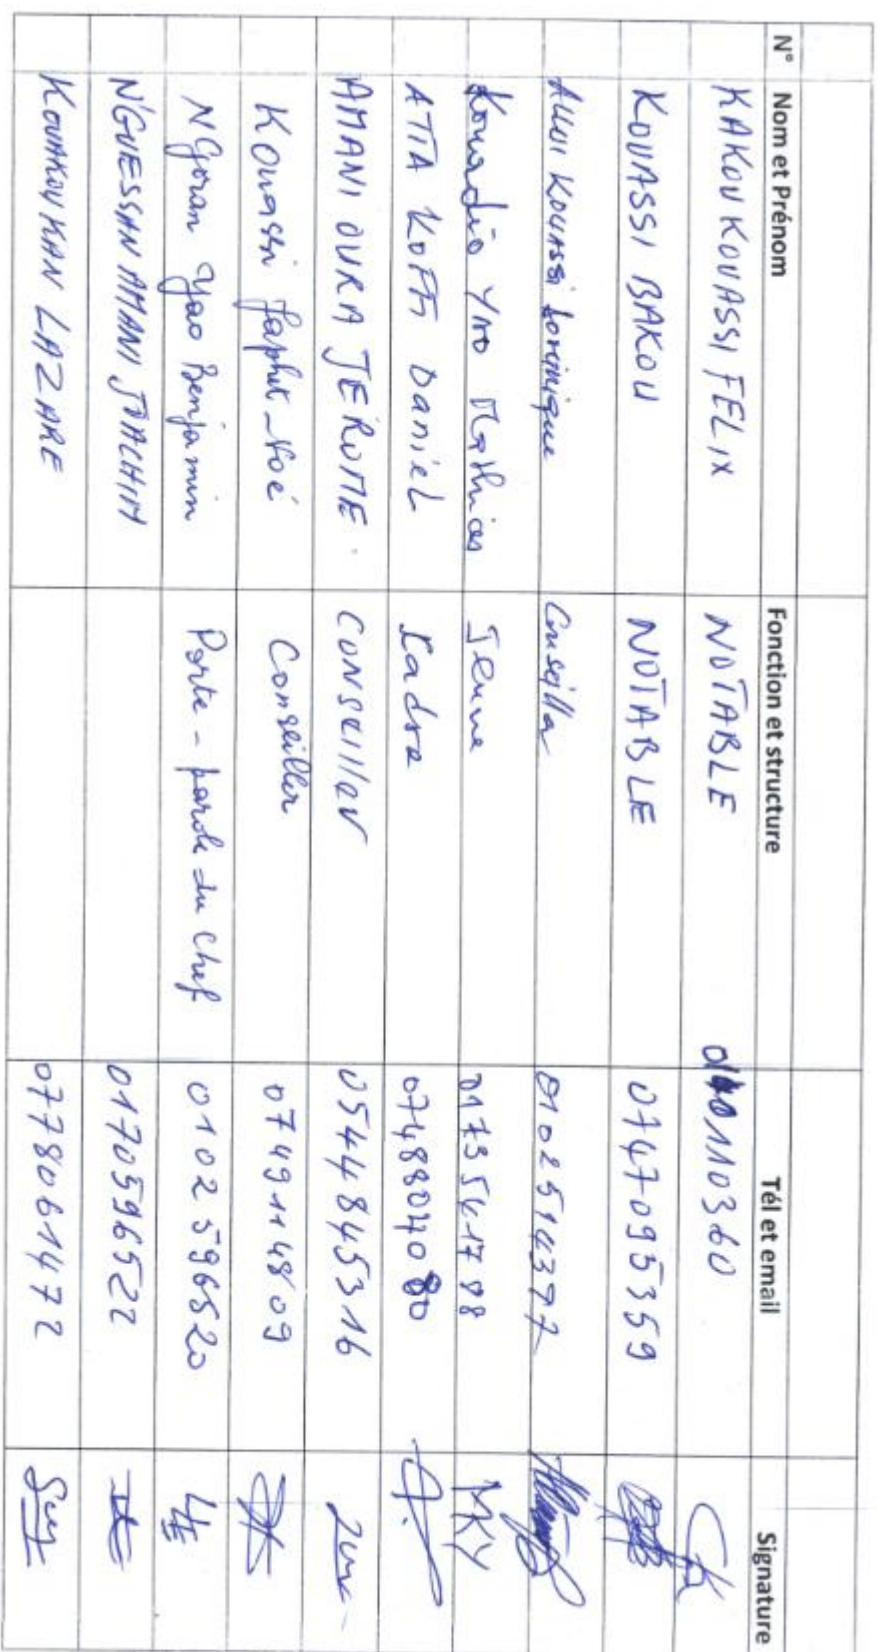 N° Nom et Prénom Fonction et structure Tél et email Signature
KAKOU KOUASSI FELIX NOTABLE 0110360
KOUASSI BAKOU NOTABLE 0747095359
KOUASSI Dominique Conseiller 0102514377
Kouadio YAO Mathias Jeune MKY
ATTA KOFFI Daniel Cadre
AMANI OURA JERÔME. CONSEILLER 0544845316
Kouassi Japhet-Noé Conseiller 0749114809
N'Goran Yao Benjamin Porte-parole du Chef 0102596520
N'GUESSAN AMANI JOACHIM 0170596522
KOUAKOU KAN LAZARE 0778061472